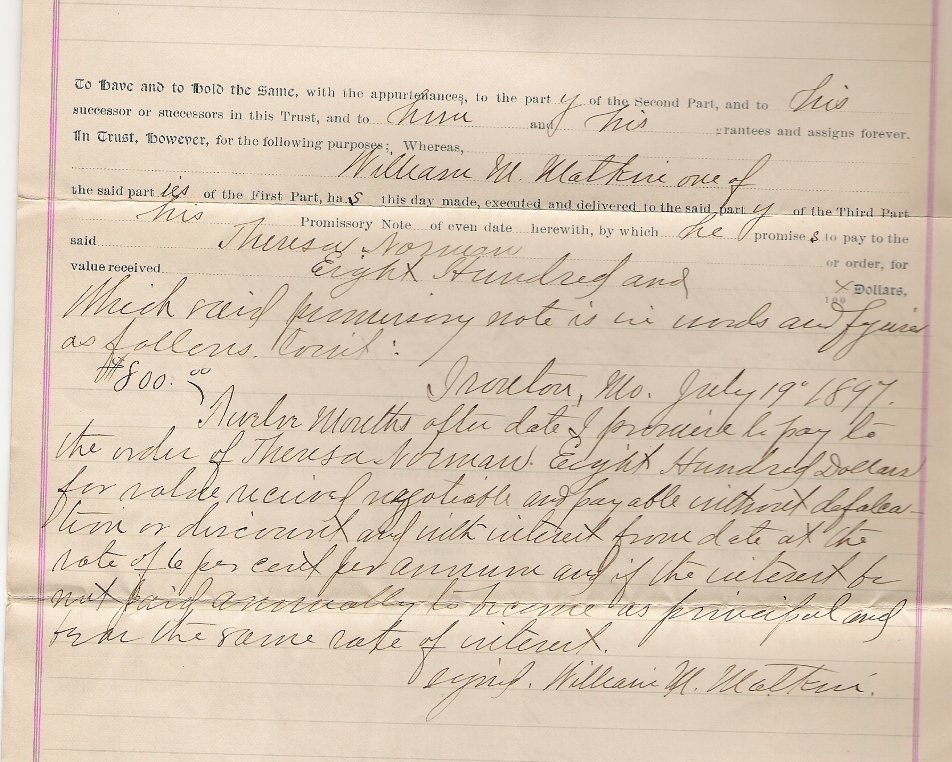 To Have and to Hold the Same, with the appurtenances, to the part y of the Second Part, and to his
successor or successors in this Trust, and to him and his grantees and assigns forever.
In Trust, However, for the following purposes; Whereas,
William M. Matkin one of
the said part ies of the First Part, ha s this day made, executed and delivered to the said part y of the Third Part
his Promissory Note of even date herewith, by which he promise s to pay to the
said Theresa Norman or order, for
value received Eight Hundred and x/100 Dollars,
Which said promissory note is in words and figures
as follows. Towit:
$800.00
Ironton, Mo. July 19" 1897.
Twelve Months after date I promise to pay to
the order of Theresa Norman. Eight Hundred Dollars
for value received negotiable and payable without defalca-
tion or discount and with interest from date at the
rate of 6 per cent per annum and if the interest be
not paid annually to become as principal and
bear the same rate of interest.
signd. William M. Matkin.